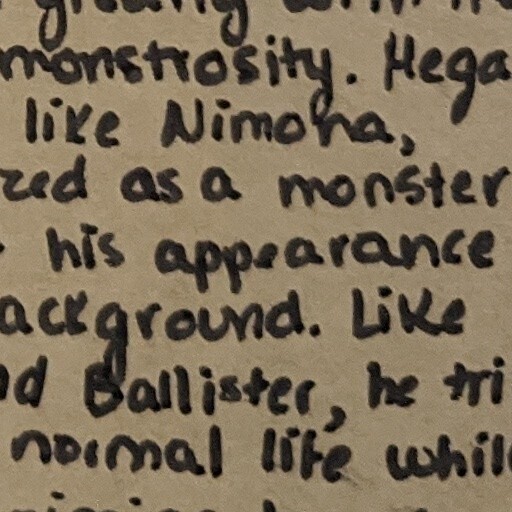 monstrosity. Mega
like Nimona,
zed as a monster
his appearance
ackground. Like
d Ballister, he tri
normal life while